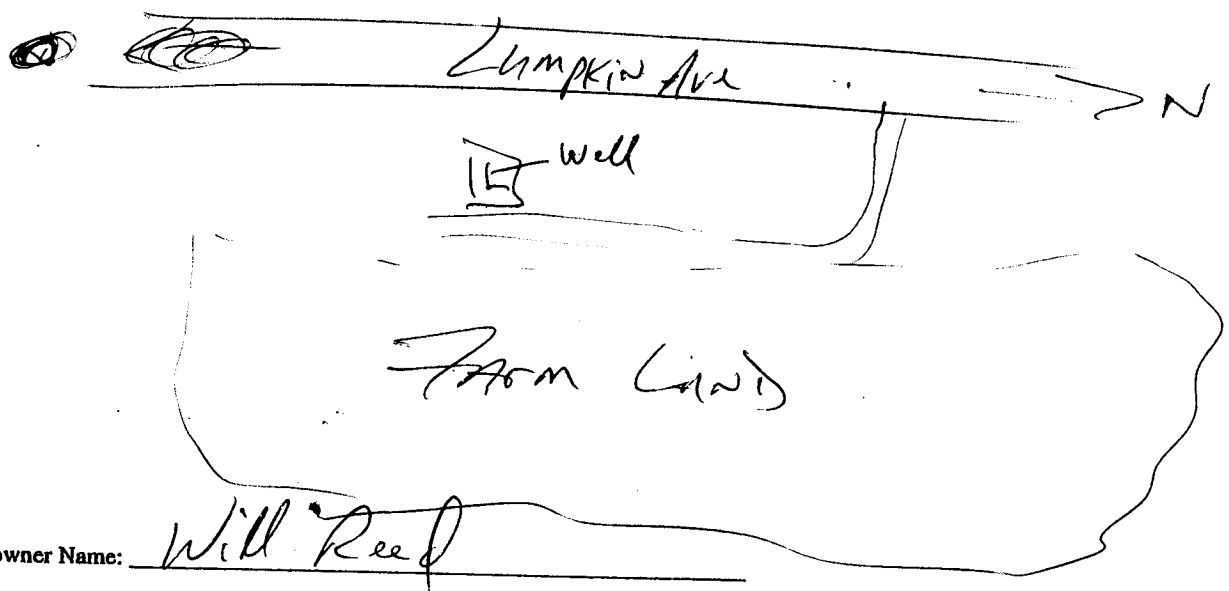 Lumpkin Ave
N
Well
Farm Land
owner Name: Will Reed